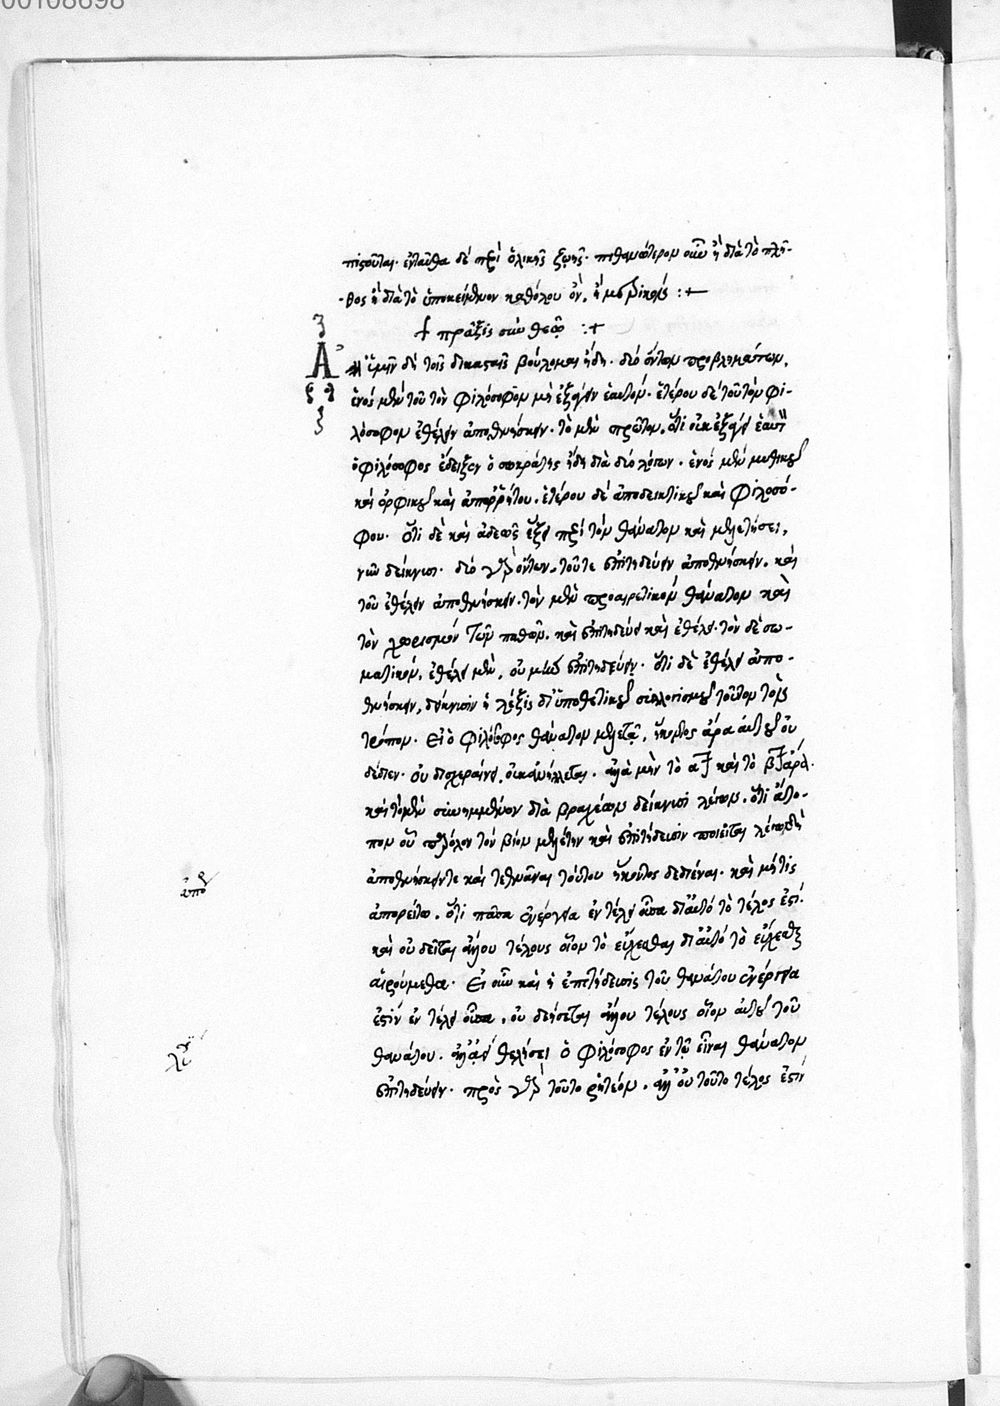 00108698
πισοῦται. ἐνταῦθα δὲ περὶ ὁλικῆς ζωῆς. πιθανώτερον οὖν ἢ διὰ τὸ πλῆ-
-θος ἢ διὰ τὸ ὑποκείμενον καθόλου ὂν, ἢ μερικοῖς :+
+ πρᾶξις σὺν θεῷ :+
Ἀλλ' ὑμῖν δὴ τοῖς δικασταῖς βούλομαι ἤδη. δύο ὄντων προβλημάτων,
ἑνὸς μὲν τοῦ τὸν φιλόσοφον μὴ ἐξάγειν ἑαυτόν. ἑτέρου δὲ τοῦ τὸν φι-
λόσοφον ἐθέλειν ἀποθνήσκειν. τὸ μὲν πρῶτον, ὅτι οὐκ ἐξάγει ἑαυτὸν
ὁ φιλόσοφος ἔδειξεν ὁ σωκράτης ἤδη διὰ δύο λόγων. ἑνὸς μὲν μυθικοῦ
καὶ ὀρφικοῦ καὶ ἀπορρήτου. ἑτέρου δὲ ἀποδεικτικοῦ καὶ φιλοσό-
φου. ὅτι δὲ καὶ ἀδεῶς ἕξει περὶ τὸν θάνατον καὶ μελετήσει,
νῦν δείκνυσι. δύο γὰρ ὄντων, τοῦ τε ἐπιτηδεύειν ἀποθνήσκειν, καὶ
τοῦ ἐθέλειν ἀποθνήσκειν. τὸν μὲν προαιρετικὸν θάνατον καὶ
τὸν χωρισμὸν τῶν παθῶν, καὶ ἐπιτηδεύει καὶ ἐθέλει. τὸν δὲ σω-
ματικόν, ἐθέλει μὲν, οὐ μὴν ἐπιτηδεύει. ὅτι δὲ ἐθέλει ἀπο-
θνήσκειν, δείκνυσιν ἡ λέξις δι' ὑποθετικοῦ συλλογισμοῦ τοῦτον τὸν
τρόπον. Εἰ ὁ φιλόσοφος θάνατον μελετᾷ, ἥκοντος ἄρα αὐτοῦ οὐ
δέδιεν. οὐ δυσχεραίνει, οὐκ ἀνιλλεται. ἀλλὰ μὴν τὸ α καὶ τὸ β ἄρα.
καὶ τὸ μὲν συνημμένον διὰ βραχέων δείκνυσι λέγων. ὅτι ἄτο-
πον οὗ παρ' ὅλον τὸν βίον μελέτην καὶ ἐπιτήδευσιν ποιεῖται λέγω δὴ
ἀποθνήσκειν τε καὶ τεθνᾶναι τούτου ἥκοντος δεδιέναι. καὶ μή τις
ἀπορείτω. ὅτι πᾶσα ἐνέργεια ἐν τέλει οὖσα δι' αὐτὸ τὸ τέλος ἐστί.
καὶ οὐ δεῖται ἄλλου τέλους οἷον τὸ εὔξεσθαι δι' αὐτὸ τὸ εὔξεσθαι
αἱρούμεθα. Εἰ οὖν καὶ ἡ ἐπιτήδευσις τοῦ θανάτου ἐνέργεια
ἐστὶν ἐν τέλει οὖσα, οὐ δεήσεται ἄλλου τέλους οἷον αὐτοῦ τοῦ
θανάτου. ἀλλ' ἀεὶ θελήσει ὁ φιλόσοφος ἐν τῷ εἶναι θάνατον
ἐπιτηδεύειν. πρὸς γὰρ τοῦτο ῥητέον, ἀλλ' οὐ τοῦτο τέλος ἐστὶ